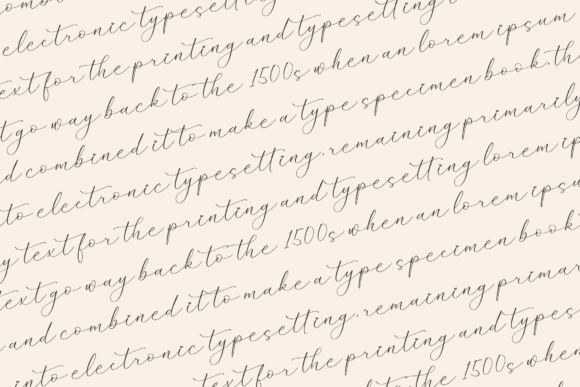 electronic typesetting
text for the printing and typesetting
t go way back to the 1500s when an lorem ipsum
d combined it to make a type specimen book. th
to electronic typesetting. remaining primarily
y text for the printing and typesetting lorem ip
text go way back to the 1500s when an lorem ipsu
and combined it to make a type specimen book
into electronic typesetting. remaining primar
text for the printing and types
to the 1500s when